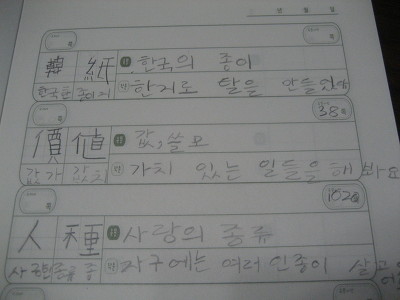 韓 紙 한국의 종이
한국한 종이지 한지로 탈을 만들었다
38쪽
價 値 값, 쓸모
값가 값치 가치 있는 일들을 해 봐요
152쪽
人 種 사람의 종류
사람인 종류 종 지구에는 여러 인종이 살고